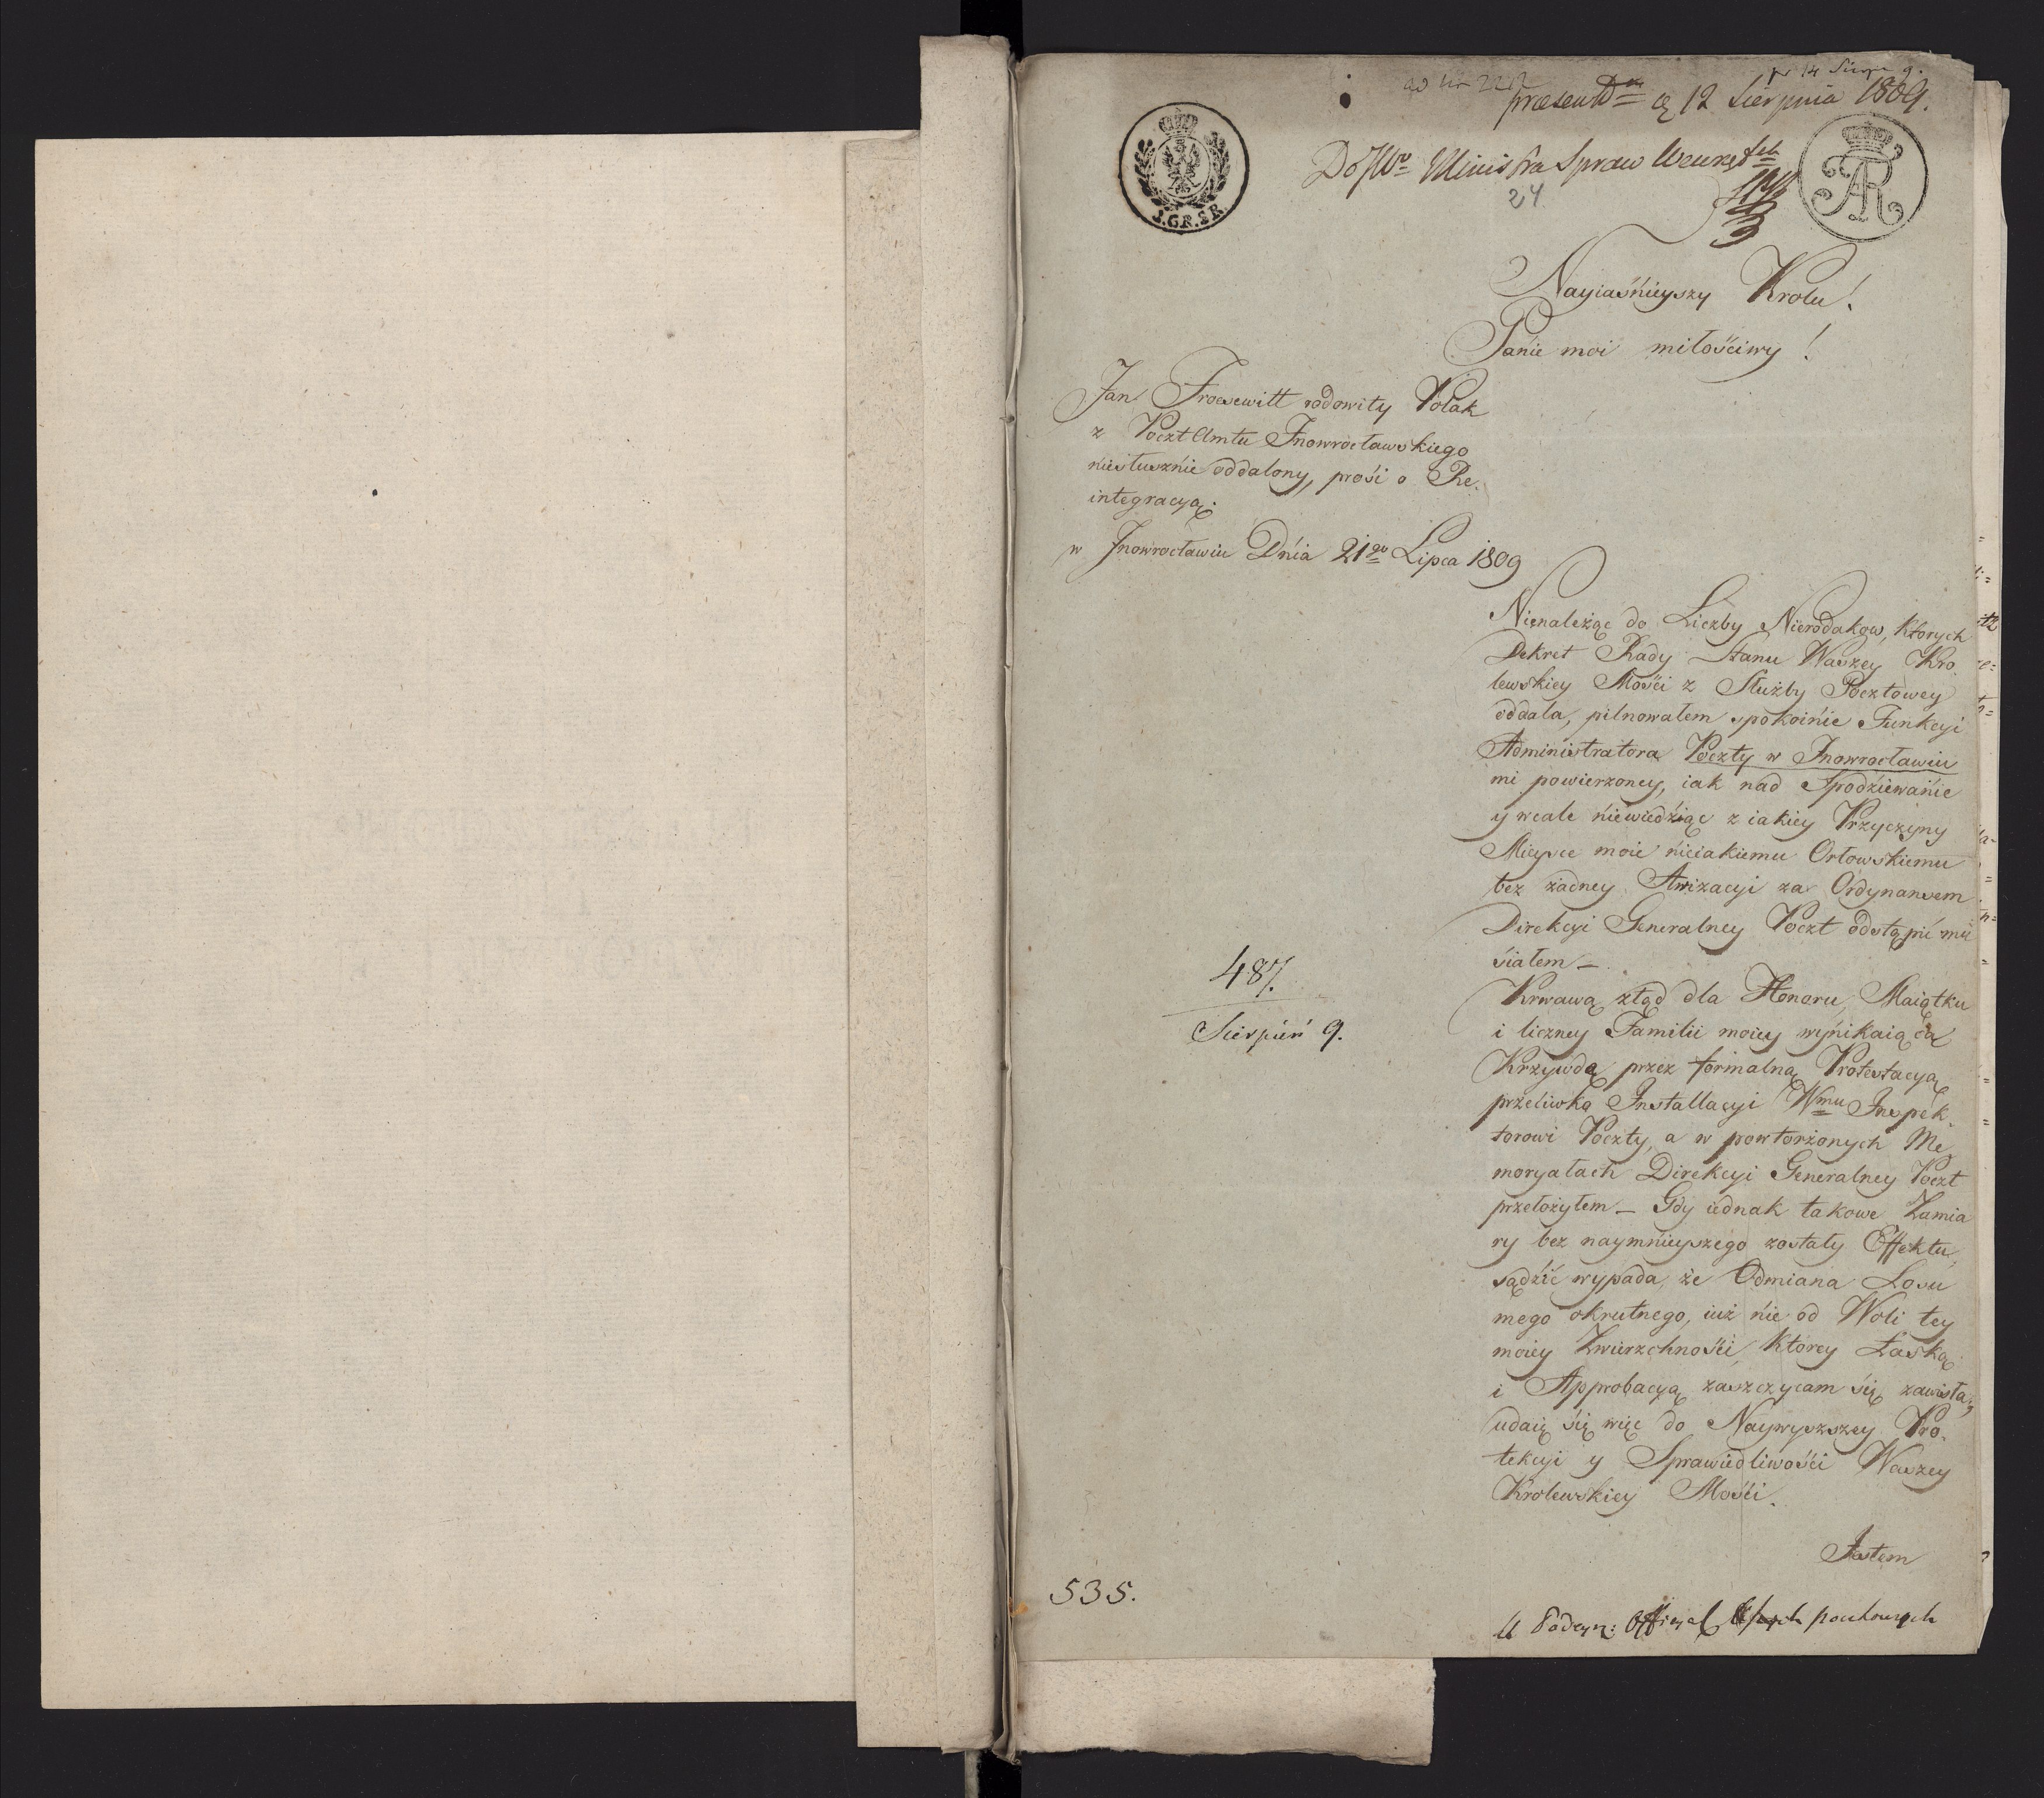 pr 14 Sierpn 9.
ad Nr 2212
præsent. d. 12 Sierpnia 1809.
Do JWo Ministra Spraw Wewnętrch
24
S.GR.SR.
FAR
Nayiaśnieyszy Krolu!
Panie moi miłościwy!
Jan Froesewitt rodowity Polak
z PocztAmtu Jnowrocławskiego
niesłusznie oddalony, prośi o Re-
integracyą.
w Jnowrocławiu Dnia 21go Lipca 1809
Nienależąc do Liczby Nierodakow, ktorych
Dekret Rady Stanu Waszey Kro
lewskiey Mośći z Służby Pocztowey
oddala, pilnowałem spokoinie Funkcyi
Administratora Poczty w Jnowrocławiu
mi powierzoney, iak nad Spodźiewanie
y wcale niewiedźiąc z iakiey Przyczyny
Mieysce moie nieiakiemu Orłowskiemu
bez żadney Awizacyi za Ordynansem
Direkcyi Generalney Poczt odstąpić mu
śiałem —
Krwawą ztąd dla Honoru, Maiątku
i liczney Familii moiey wynikaiącą
Krzywdę przez formalną Protestacyą
przeciwko Installacyi Wmu Inspek-
torowi Poczty, a w powtorzonych Me
moryałach Direkcyi Generalney Poczt
przełożyłem — Gdy iednak takowe Zamia
ry bez naymnieyszego zostały Effektu,
sądźić wypada, że Odmiana Losu
mego okrutnego, iuż nie od Woli tey
moiey Zwierzchnośći, ktorey Łaską
i Approbacyą zaszczycam śię zawisła,
udaię śię więc do Naywyższey Pro-
tekcyi y Sprawiedliwośći Waszey
Krolewskiey Mośći.
Jestem
487.
Sierpień 9.
535.